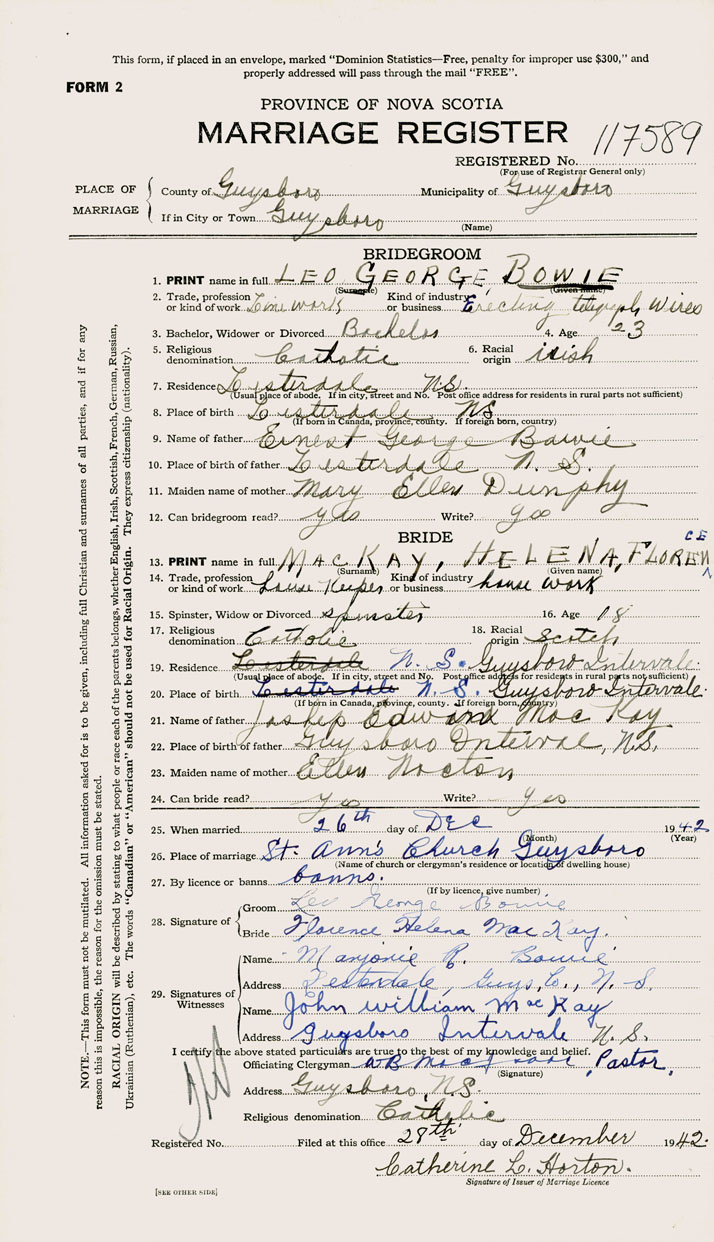 This form, if placed in an envelope, marked "Dominion Statistics—Free, penalty for improper use $300," and
properly addressed will pass through the mail "FREE".
FORM 2
PROVINCE OF NOVA SCOTIA
MARRIAGE REGISTER 117589
REGISTERED No.
(For use of Registrar General only)
PLACE OF MARRIAGE
County of Guysboro Municipality of Guysboro
If in City or Town Guysboro
(Name)
BRIDEGROOM
1. PRINT name in full LEO GEORGE, BOWIE
(Surname) (Given name)
2. Trade, profession or kind of work Line work Kind of industry or business Erecting telegraph wires
3. Bachelor, Widower or Divorced Bachelor 4. Age 23
5. Religious denomination Catholic 6. Racial origin irish
7. Residence Listerdale N.S.
(Usual place of abode. If in city, street and No. Post office address for residents in rural parts not sufficient)
8. Place of birth Listerdale NS
(If born in Canada, province, county. If foreign born, country)
9. Name of father Ernest George Bowie
10. Place of birth of father Listerdale N. S.
11. Maiden name of mother Mary Ellen Dunphy
12. Can bridegroom read? yes Write? yes
BRIDE
13. PRINT name in full MacKAY, HELENA, FLORENCE
(Surname) (Given name)
14. Trade, profession or kind of work House Keeper Kind of industry or business house work
15. Spinster, Widow or Divorced spinster 16. Age 18
17. Religious denomination Catholic 18. Racial origin scotch
19. Residence Listerdale N. S. Guysboro Intervale.
(Usual place of abode. If in city, street and No. Post office address for residents in rural parts not sufficient)
20. Place of birth Listerdale N. S. Guysboro Intervale.
(If born in Canada, province, county. If foreign born, country)
21. Name of father Joship Edward Mac Kay
22. Place of birth of father Guysboro Interval, N.S.
23. Maiden name of mother Ellen Nocton
24. Can bride read? Yes Write? Yes
25. When married 26th day of DEC 1942
(Month) (Year)
26. Place of marriage St. Ann's Church Guysboro
(Name of church or clergyman's residence or location of dwelling house)
27. By licence or banns banns.
(If by licence, give number)
28. Signature of
Groom Leo George Bowie
Bride Florence Helena Mac Kay.
29. Signatures of Witnesses
Name Marjorie R. Bowie
Address Lesterdale, Guys, Co., N. S.
Name John William MacKay
Address Guysboro Intervale N. S.
I certify the above stated particulars are true to the best of my knowledge and belief.
Officiating Clergyman Pastor,
(Signature)
Address Guysboro, N.S.
Religious denomination Catholic
Registered No. Filed at this office 28th day of December 1942.
Catherine L. Horton.
Signature of Issuer of Marriage Licence
[SEE OTHER SIDE]
NOTE.—This form must not be mutilated. All information asked for is to be given, including full Christian and surnames of all parties, and if for any
reason this is impossible, the reason for the omission must be stated.
RACIAL ORIGIN will be described by stating to what people or race each of the parents belongs, whether English, Irish, Scottish, French, German, Russian,
Ukrainian (Ruthenian), etc. The words "Canadian" or "American" should not be used for Racial Origin. They express citizenship (nationality).